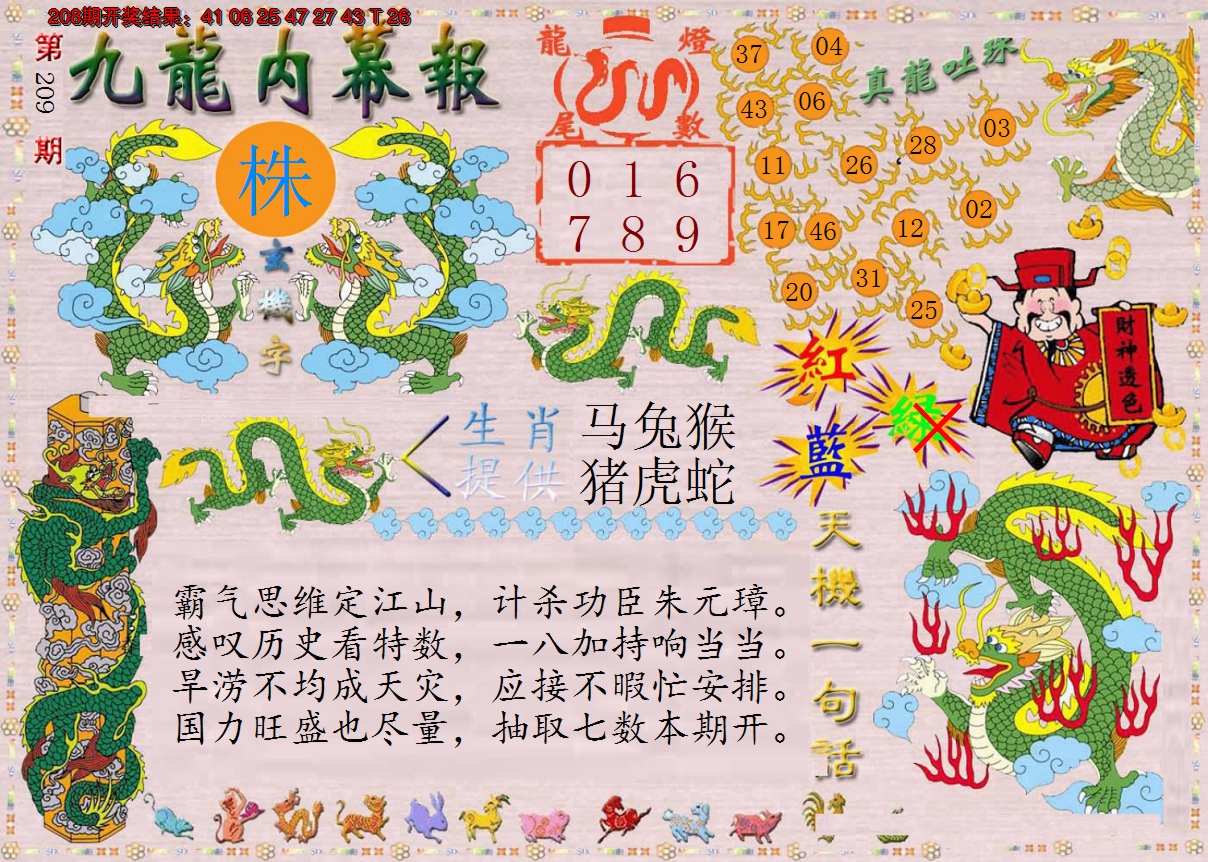 208期开奖结果：41 06 25 47 27 43 T 26
第209期
九龍内幕報
株
玄機字
龍燈
尾數
0 1 6
7 8 9
真龍吐珠
37 04
43 06
28 03
11 26
02
17 46 12
31
20 25
財神透色
紅
綠
藍
生肖 马兔猴
提供 猪虎蛇
天機一句話
霸气思维定江山，计杀功臣朱元璋。
感叹历史看特数，一八加持响当当。
旱涝不均成天灾，应接不暇忙安排。
国力旺盛也尽量，抽取七数本期开。